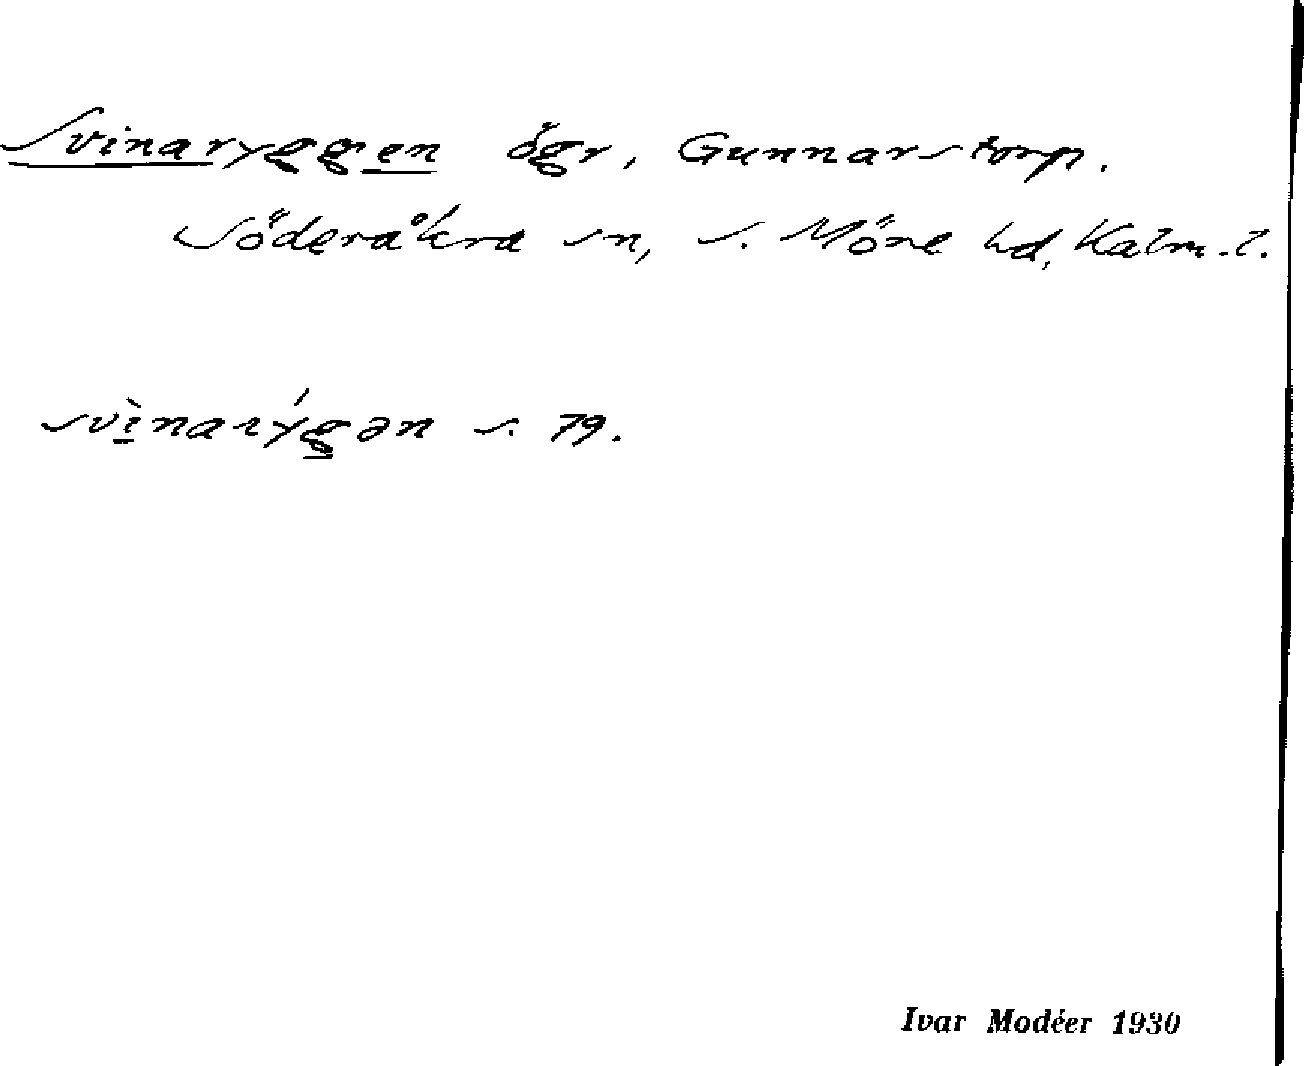 Svinaryggen ögr, Gunnarstorp.
Söderåkra sn, s. Möre hd, Kalm. l.
svìnarýgən s. 79.
Ivar Modéer 1930